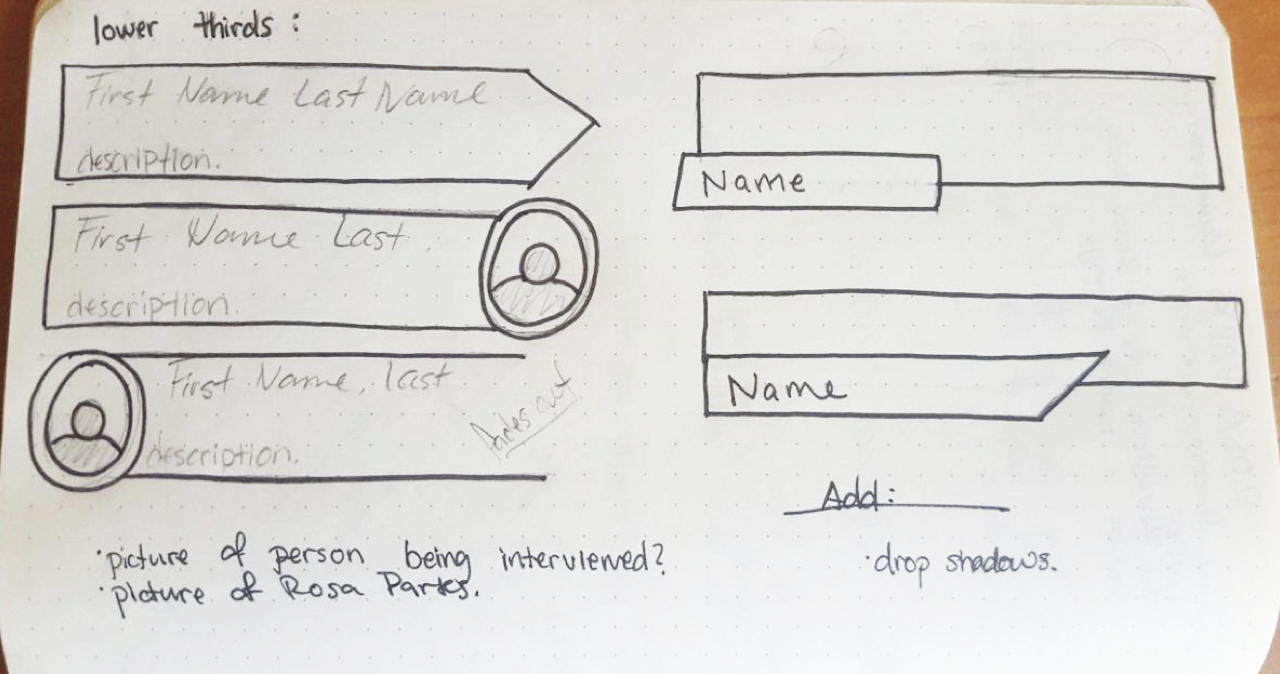 lower thirds :
First Name Last Name
description.
First Name Last
description.
First Name, last
description.
fades out
·picture of person being interviewed?
·picture of Rosa Parks.
Name
Name
Add:
·drop shadows.